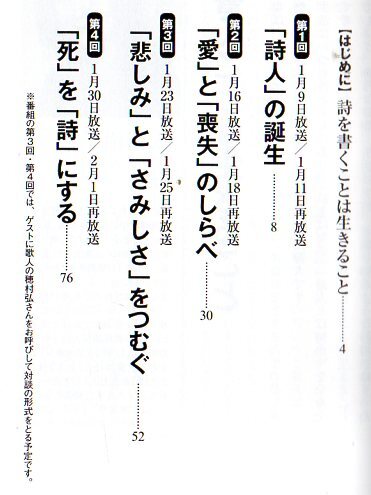 【はじめに】詩を書くことは生きること…………4
第1回 1月9日放送／1月11日再放送
「詩人」の誕生…………8
第2回 1月16日放送／1月18日再放送
「愛」と「喪失」のしらべ…………30
第3回 1月23日放送／1月25日再放送
「悲しみ」と「さみしさ」をつむぐ…………52
第4回 1月30日放送／2月1日再放送
「死」を「詩」にする…………76
※番組の第3回・第4回では、ゲストに歌人の穂村弘さんをお呼びして対談の形式をとる予定です。